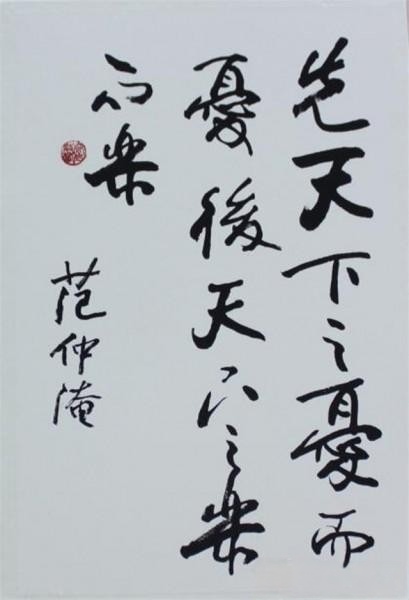 先天下之憂而
憂後天下之樂
而樂
范仲淹